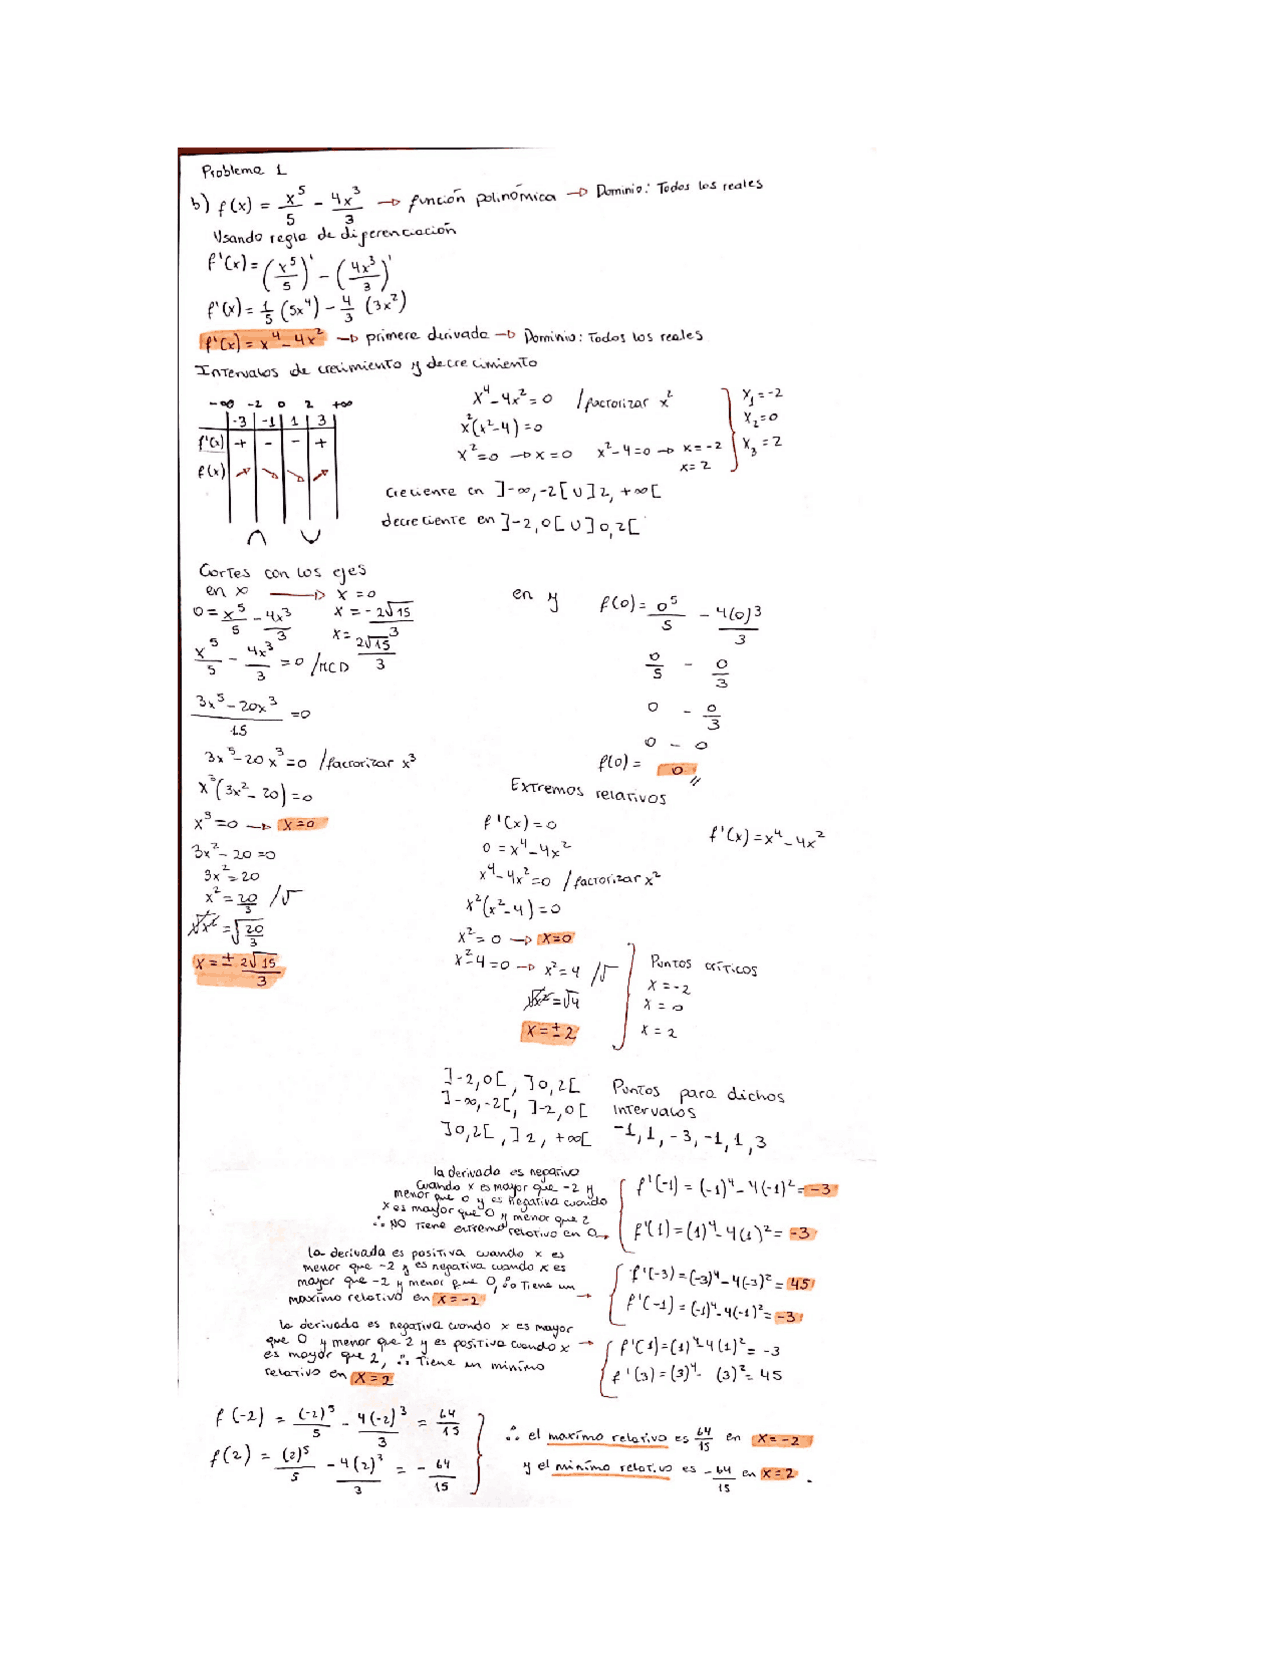 Problema 1
b) f(x) = x⁵/5 - 4x³/3 → función polinómica → Dominio: Todos los reales
Usando regla de diferenciación
f'(x) = (x⁵/5)' - (4x³/3)'
f'(x) = 1/5 (5x⁴) - 4/3 (3x²)
f'(x) = x⁴ - 4x² → primera derivada → Dominio: Todos los reales
Intervalos de crecimiento y decrecimiento
-∞ -2 0 2 +∞
-3 | -1 | 1 | 3
f'(x) + - - +
f(x) ↗ ↘ ↘ ↗
∩ ∪
x⁴ - 4x² = 0 / factorizar x²
x²(x² - 4) = 0
x² = 0 → x = 0 x² - 4 = 0 → x = -2
x = 2
x₁ = -2
x₂ = 0
x₃ = 2
creciente en ]-∞, -2[ U ]2, +∞[
decreciente en ]-2, 0[ U ]0, 2[
Cortes con los ejes
en x → x = 0
0 = x⁵/5 - 4x³/3 x = -2√15/3
x = 2√15/3
x⁵/5 - 4x³/3 = 0 / MCD
3x⁵ - 20x³/15 = 0
3x⁵ - 20x³ = 0 / factorizar x³
x³(3x² - 20) = 0
x³ = 0 → x = 0
3x² - 20 = 0
3x² = 20
x² = 20/3 /√
√x² = √20/3
x = ± 2√15/3
en y f(0) = 0⁵/5 - 4(0)³/3
0/5 - 0/3
0 - 0/3
0 - 0
f(0) = 0 //
Extremos relativos
f'(x) = 0 f'(x) = x⁴ - 4x²
0 = x⁴ - 4x²
x⁴ - 4x² = 0 / factorizar x²
x²(x² - 4) = 0
x² = 0 → x = 0
x² - 4 = 0 → x² = 4 /√
√x² = √4
x = ± 2
Puntos críticos
x = -2
x = 0
x = 2
]-2, 0[ , ]0, 2[ Puntos para dichos
]-∞, -2[ , ]-2, 0[ Intervalos
]0, 2[ , ]2, +∞[ -1, 1, -3, -1, 1, 3
la derivada es negativo
cuando x es mayor que -2 y
menor que 0 y es negativa cuando
x es mayor que 0 y menor que 2
∴ NO Tiene extremo relativo en 0 →
f'(-1) = (-1)⁴ - 4(-1)² = -3
f'(1) = (1)⁴ - 4(1)² = -3
la derivada es positiva cuando x es
menor que -2 y es negativa cuando x es
mayor que -2 y menor que 0, ∴ Tiene un
maximo relativo en x = -2 →
f'(-3) = (-3)⁴ - 4(-3)² = 45
f'(-1) = (-1)⁴ - 4(-1)² = -3
la derivada es negativa cuando x es mayor
que 0 y menor que 2 y es positiva cuando x →
es mayor que 2, ∴ Tiene un minimo
relativo en x = 2
f'(1) = (1)⁴ - 4(1)² = -3
f'(3) = (3)⁴ - (3)² = 45
f(-2) = (-2)⁵/5 - 4(-2)³/3 = 64/15
f(2) = (2)⁵/5 - 4(2)³/3 = - 64/15
∴ el maximo relativo es 64/15 en x = -2
y el minimo relativo es -64/15 en x = 2 .